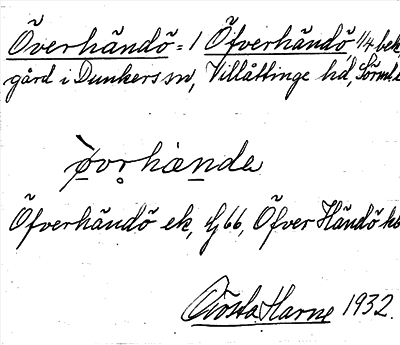 Överhändö = 1 Öfverhändö, 1/4 bek
gård i Dunkers sn, Villåttinge hd, Sörml
ö̀vo̩rhæ̀nda
Öfverhändö ek, G 66, Öfver Händö kb
Gösta Harne 1932.